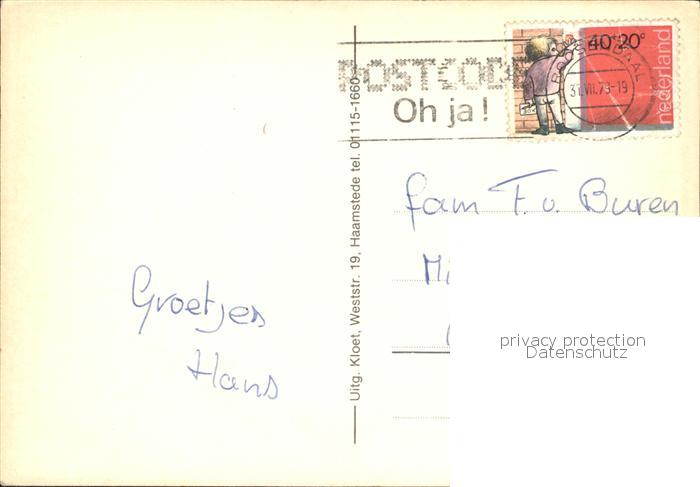 POSTCODE
Oh ja!
40+20c
nederland
ROOSENDAAL
31.VII.79-19
Uitg. Kloet, Weststr. 19, Haamstede tel. 01115-1660
fam F. v. Buren
Mi
Groetjes
Hans
privacy protection
Datenschutz